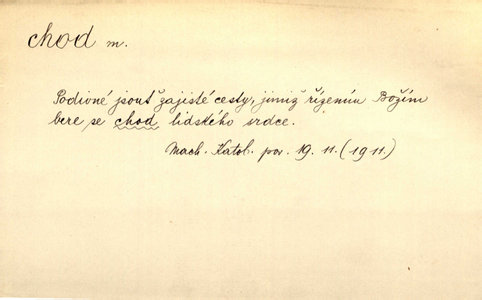 chod m.
Podivné jsouť zajisté cesty, jimiž řízením Božím
bere se chod lidského srdce.
Mach. Katol. pov. 19. 11. (1911.)